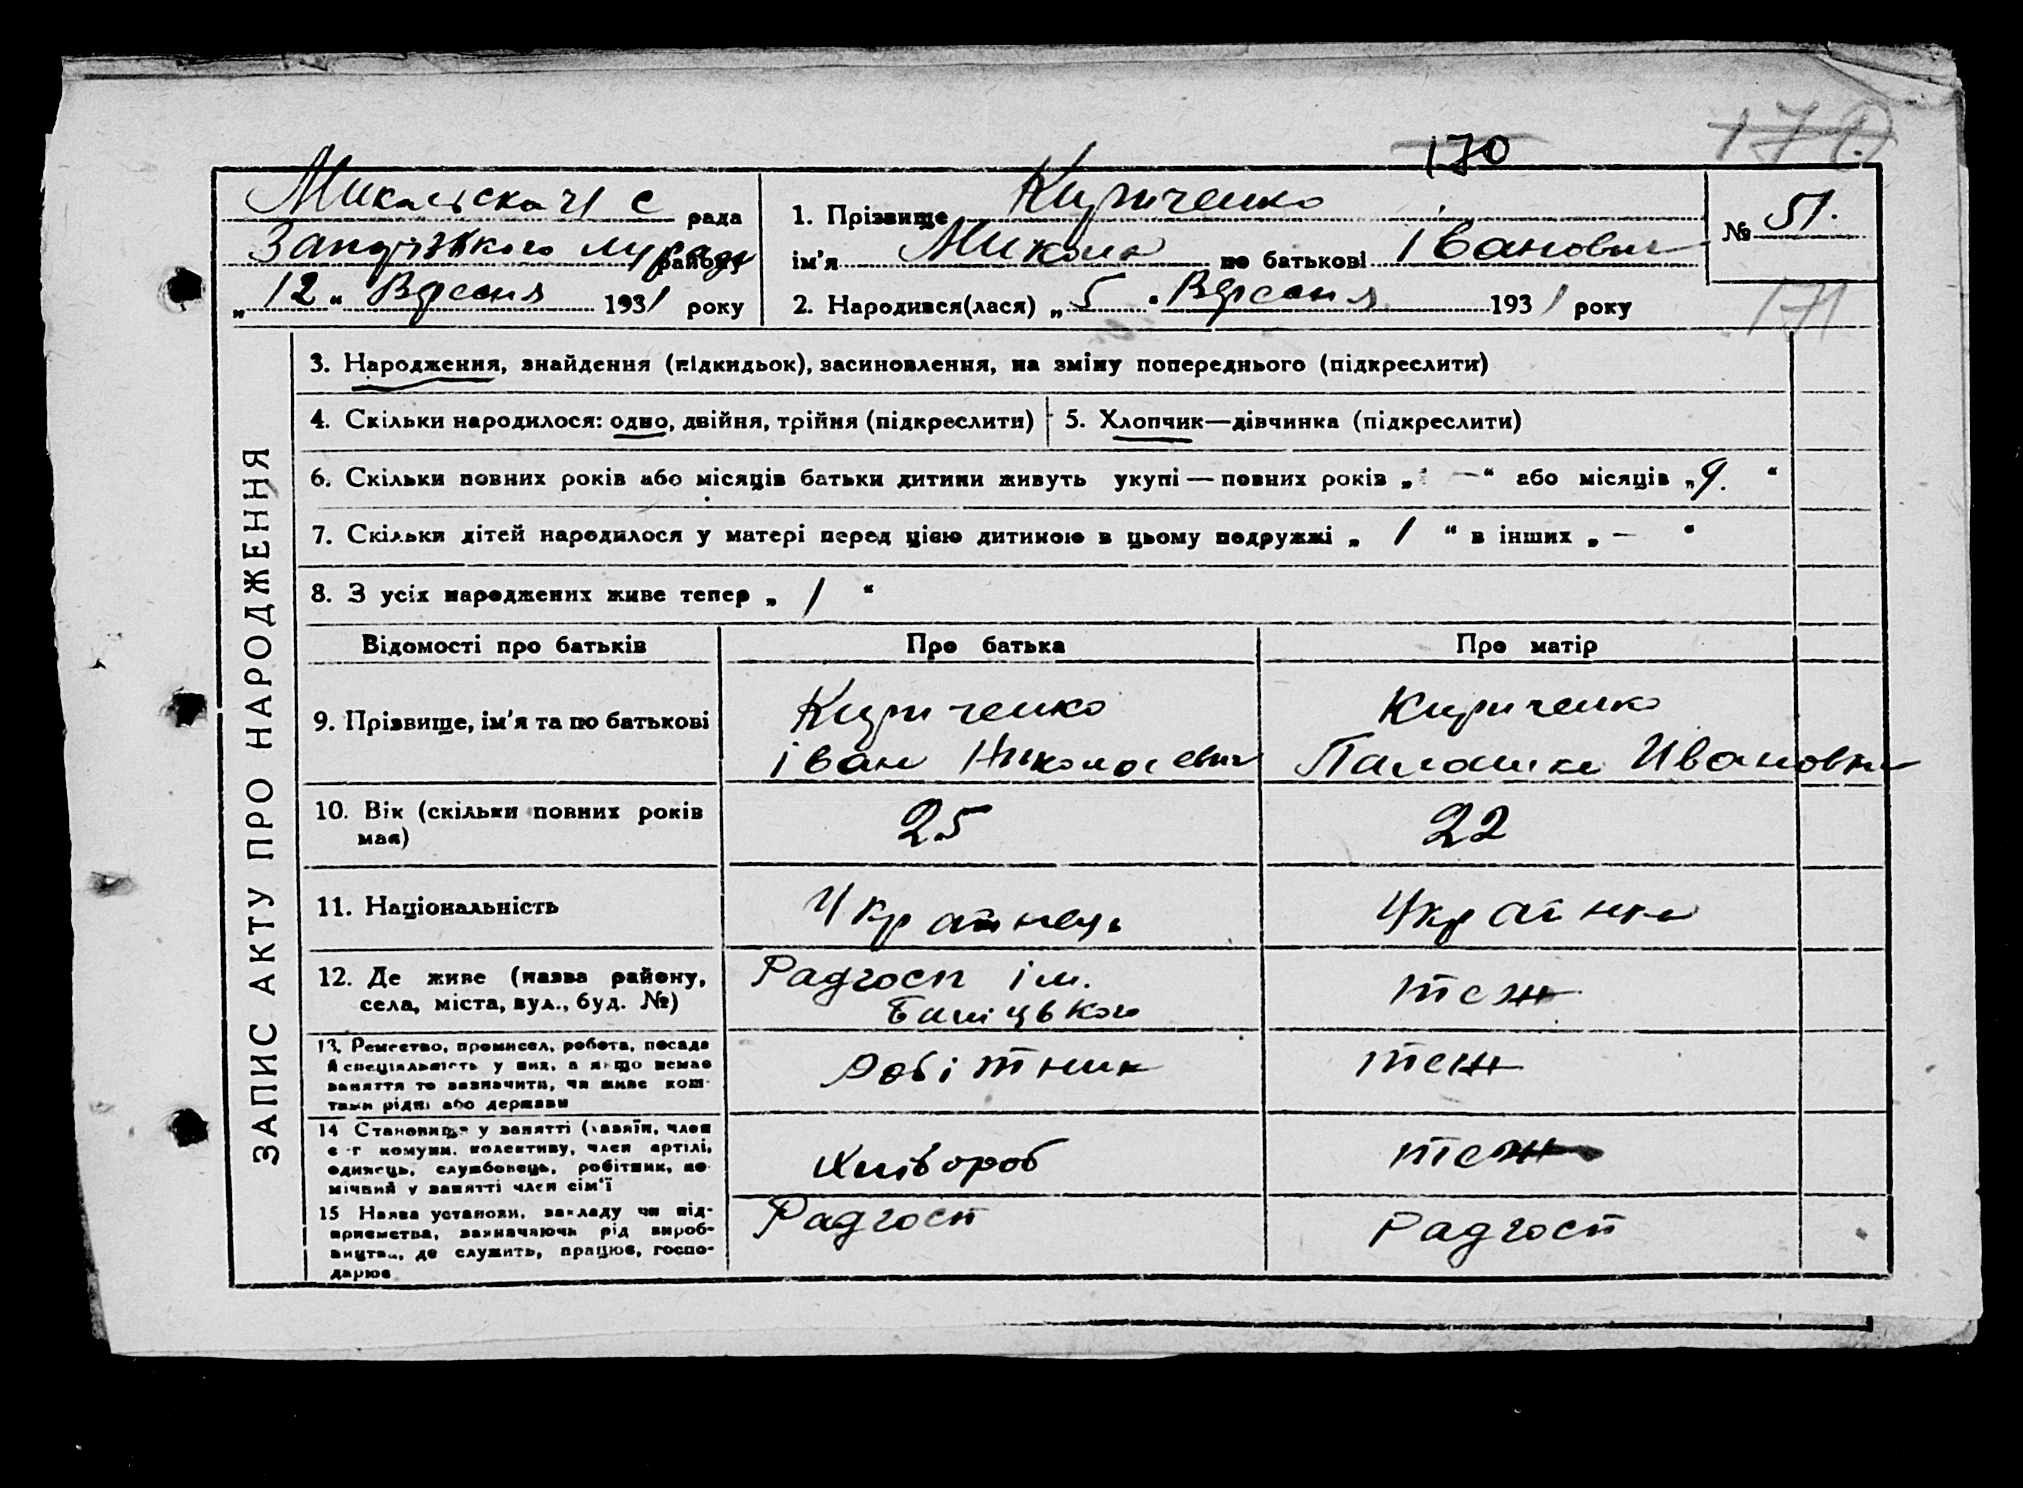 170
Микільска с рада
Запорізького міськради району
„ 12 “ Вересня 1931 року
1. Прізвище Кириченко
ім'я Микола по батькові Іванович
2. Народився(лася) „ 5 “ Вересня 1931 року
№ 51.
171
ЗАПИС АКТУ ПРО НАРОДЖЕННЯ
3. Народження, знайдення (підкидьок), засиновлення, на зміну попереднього (підкреслити)
4. Скільки народилося: одно, двійня, трійня (підкреслити)
5. Хлопчик—дівчинка (підкреслити)
6. Скільки повних років або місяців батьки дитини живуть укупі — повних років „ — “ або місяців „ 9. “
7. Скільки дітей народилося у матері перед цією дитиною в цьому подружжі „ 1 “ в інших „ — “
8. З усіх народжених живе тепер „ 1 “
Відомості про батьків Про батька Про матір
9. Прізвище, ім'я та по батькові
Кириченко
Іван Николаевич
Кириченко
Палашка Ивановна
10. Вік (скільки повних років
має)
25
22
11. Національність
Українець
Українка
12. Де живе (назва району,
села, міста, вул., буд. №)
Радгосп ім.
теж
13. Ремество, промисел, робота, посада
й спеціяльність у них, а якщо немає
заняття то зазначити, чи живе кош-
тами рідні або держави
Робітник
теж
14 Становище у занятті (хазяїн, член
с-г комуни, колективу, член артілі,
одинець, службовець, робітник, по-
мічний у занятті член сім'ї
теж
15 Назва установи, закладу чи під-
приємства, зазначаючи рід вироб-
ництва, де служить, працює, госпо-
дарює
Радгосп
Радгосп